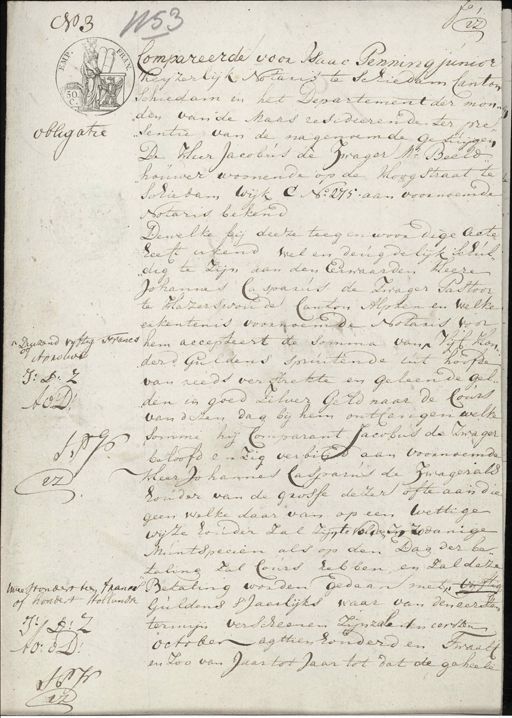 No 3
N 53
EMP. FRAN.
50 C.
Compareerde voor Isaac Penning junior
Keyzerlijk Notaris te Schiedam Canton
Schiedam in het Departement der mon-
den van de Maas resideerende ter pre-
sentie van de nagenoemde getuijgen
obligatie
De Heer Jacobus de Zwager Mr Beeld-
houwer woonende op de Hoogstraat te
Schiedam Wijk C No 275 aan voornoemde
Notaris bekend
Dewelke bij deeze teegenwoordige Acte
heeft erkend wel en deugdelijk schul-
dig te zijn aan den Eerwaarden Heere
Johannes Casparus de Zwager Pastoor
te Hazerswoude Canton Alphen en welke
erkentenis voornoemde Notaris voor
hem accepteert de somma van Vijf hon-
derd Guldens spruitende uit hoofde
van reeds verstrekte en geleende gel-
den in goed Zilver Geld naar de Cours
van deezen dag bij hem ontfangen welke
somme hij Comparant Jacobus de Zwager
beloofd en zig verbind aan voornoemde
Heer Johannes Casparus de Zwager als
houder van de grosse dezer ofte aan die
geen welke daar van op een wettige
wijze houder zal zijn te voldoen in zodanige
Muntspecien als op den Dag der be-
taling zal Cours hebben, en zal deze
Betaling worden gedaan met
Guldens 's Jaarlijks waar van den eersten
termijn verscheenen zijn zal den eersten
october agthien honderd en Twaalf
en zoo van Jaar tot Jaar tot dat de geheele
duizend vijftig Francs
J: D: Z
honderd Hollandse
J: D: Z